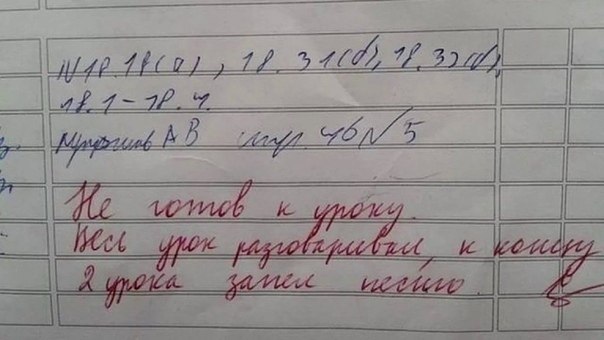 №18.18(а), 18.31(б), 18.32(б),
18.1-18.4.
АВ стр. 46 №5
Не готов к уроку.
Весь урок разговаривал, к концу
2 урока запел песню.